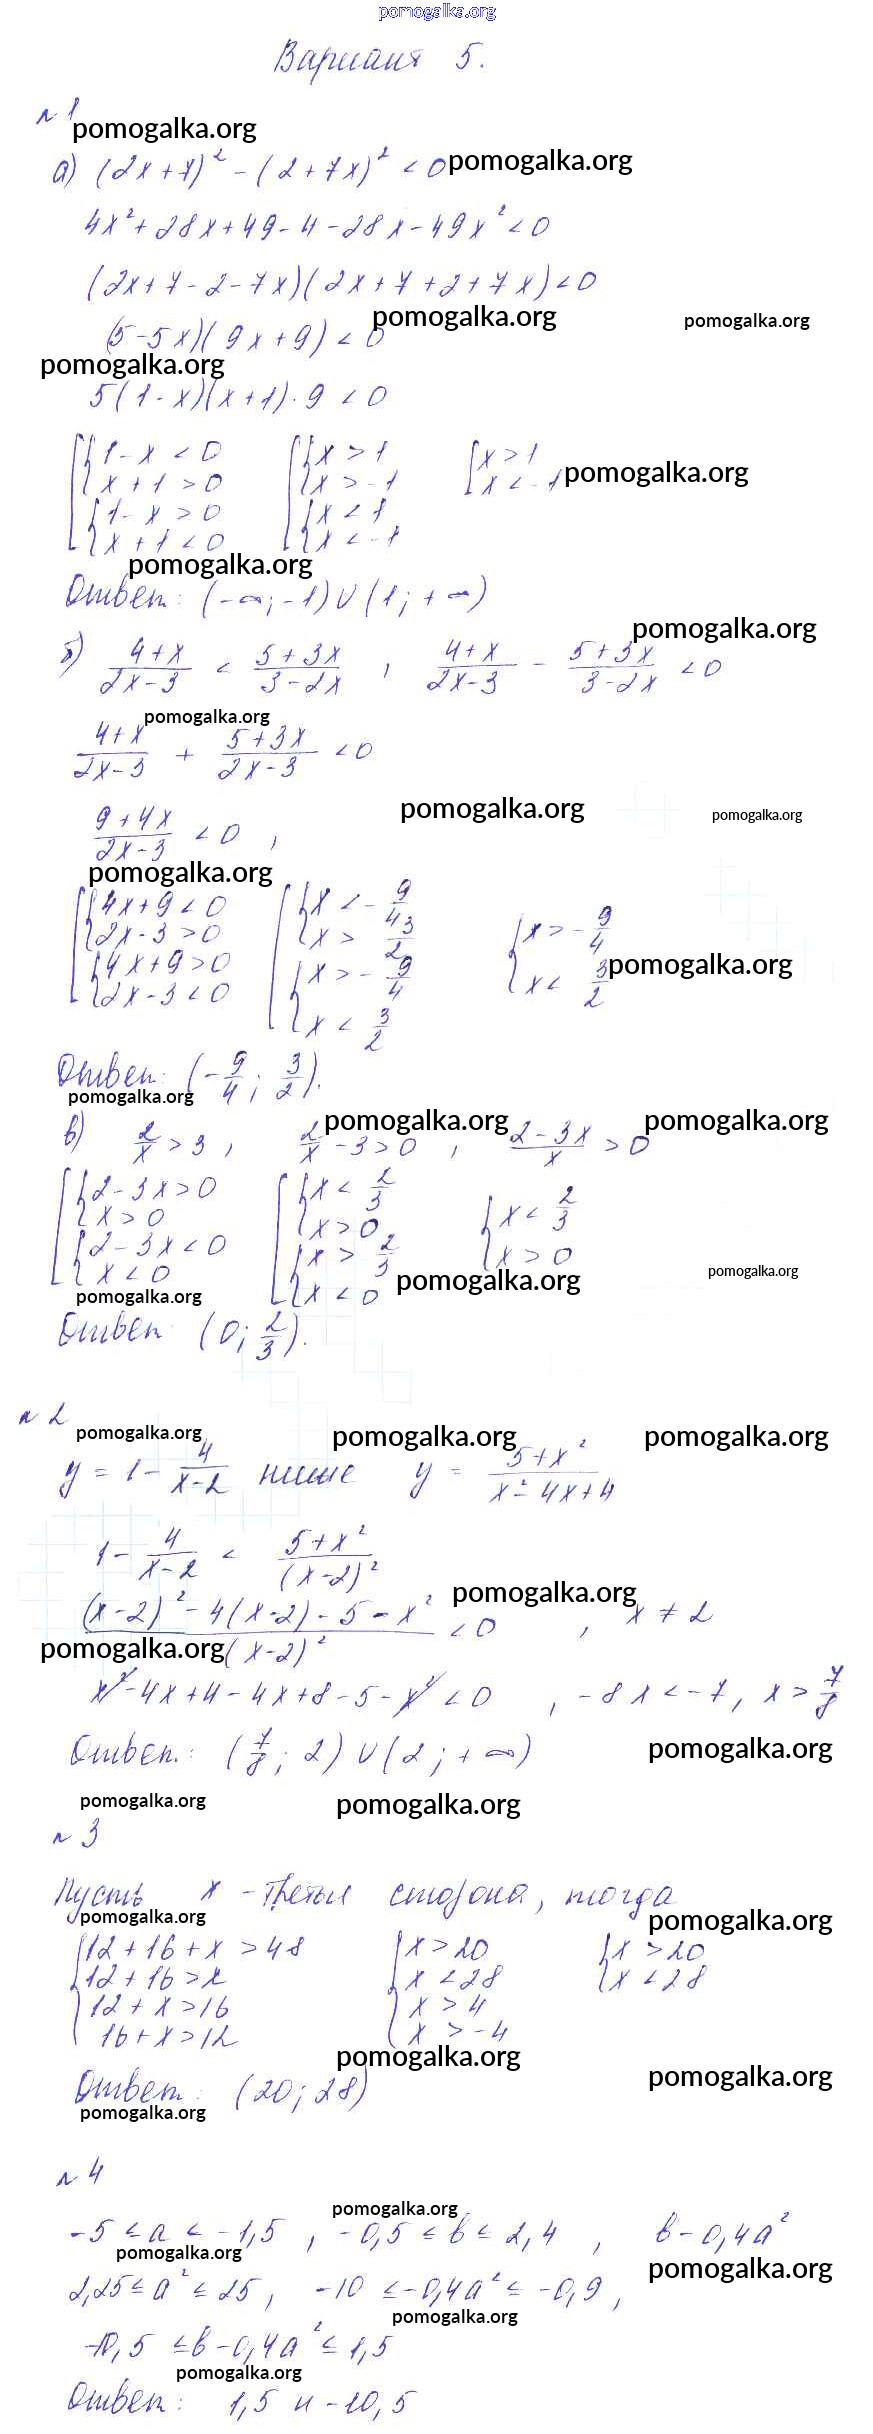 pomogalka.org
Вариант 5.
№ 1
pomogalka.org
а) (2x+7)² - (2+7x)² < 0 pomogalka.org
4x² + 28x + 49 - 4 - 28x - 49x² < 0
(2x+7-2-7x)(2x+7+2+7x) < 0
pomogalka.org pomogalka.org
(5-5x)(9x+9) < 0
pomogalka.org
5(1-x)(x+1)·9 < 0
1-x < 0 x > 1 x > 1
x+1 > 0 x > -1 x < -1 pomogalka.org
1-x > 0 x < 1
x+1 < 0 x < -1
pomogalka.org
Ответ: (-∞; -1) ∪ (1; +∞)
pomogalka.org
б) (4+x)/(2x-3) < (5+3x)/(3-2x) , (4+x)/(2x-3) - (5+3x)/(3-2x) < 0
pomogalka.org
(4+x)/(2x-3) + (5+3x)/(2x-3) < 0
pomogalka.org pomogalka.org
(9+4x)/(2x-3) < 0 ,
pomogalka.org
4x+9 < 0 x < -9/4 x > -9/4
2x-3 > 0 x > 3/2 x < 3/2 pomogalka.org
4x+9 > 0 x > -9/4
2x-3 < 0 x < 3/2
Ответ: (-9/4; 3/2).
pomogalka.org
pomogalka.org pomogalka.org
в) 2/x > 3 , 2/x - 3 > 0 , (2-3x)/x > 0
2-3x > 0 x < 2/3 x < 2/3
x > 0 x > 0 x > 0
2-3x < 0 x > 2/3
x < 0 x < 0
pomogalka.org pomogalka.org
pomogalka.org
Ответ: (0; 2/3).
№ 2
pomogalka.org pomogalka.org pomogalka.org
y = 1 - 4/(x-2) ниже y = (5+x²)/(x²-4x+4)
1 - 4/(x-2) < (5+x²)/(x-2)²
pomogalka.org
((x-2)² - 4(x-2) - 5 - x²)/(x-2)² < 0 , x ≠ 2
pomogalka.org
x² - 4x + 4 - 4x + 8 - 5 - x² < 0 , -8x < -7, x > 7/8
Ответ: (7/8; 2) ∪ (2; +∞)
pomogalka.org
pomogalka.org pomogalka.org
№ 3
Пусть x - третья сторона, тогда
pomogalka.org pomogalka.org
12+16+x > 48 x > 20 x > 20
12+16 > x x < 28 x < 28
12+x > 16 x > 4
16+x > 12 x > -4
pomogalka.org pomogalka.org
Ответ: (20; 28)
pomogalka.org
№ 4
pomogalka.org
-5 ≤ a ≤ -1,5 , -0,5 ≤ b ≤ 2,4 , b - 0,4a²
pomogalka.org pomogalka.org
2,25 ≤ a² ≤ 25 , -10 ≤ -0,4a² ≤ -0,9 ,
pomogalka.org
-10,5 ≤ b - 0,4a² ≤ 1,5
pomogalka.org
Ответ: 1,5 и -10,5